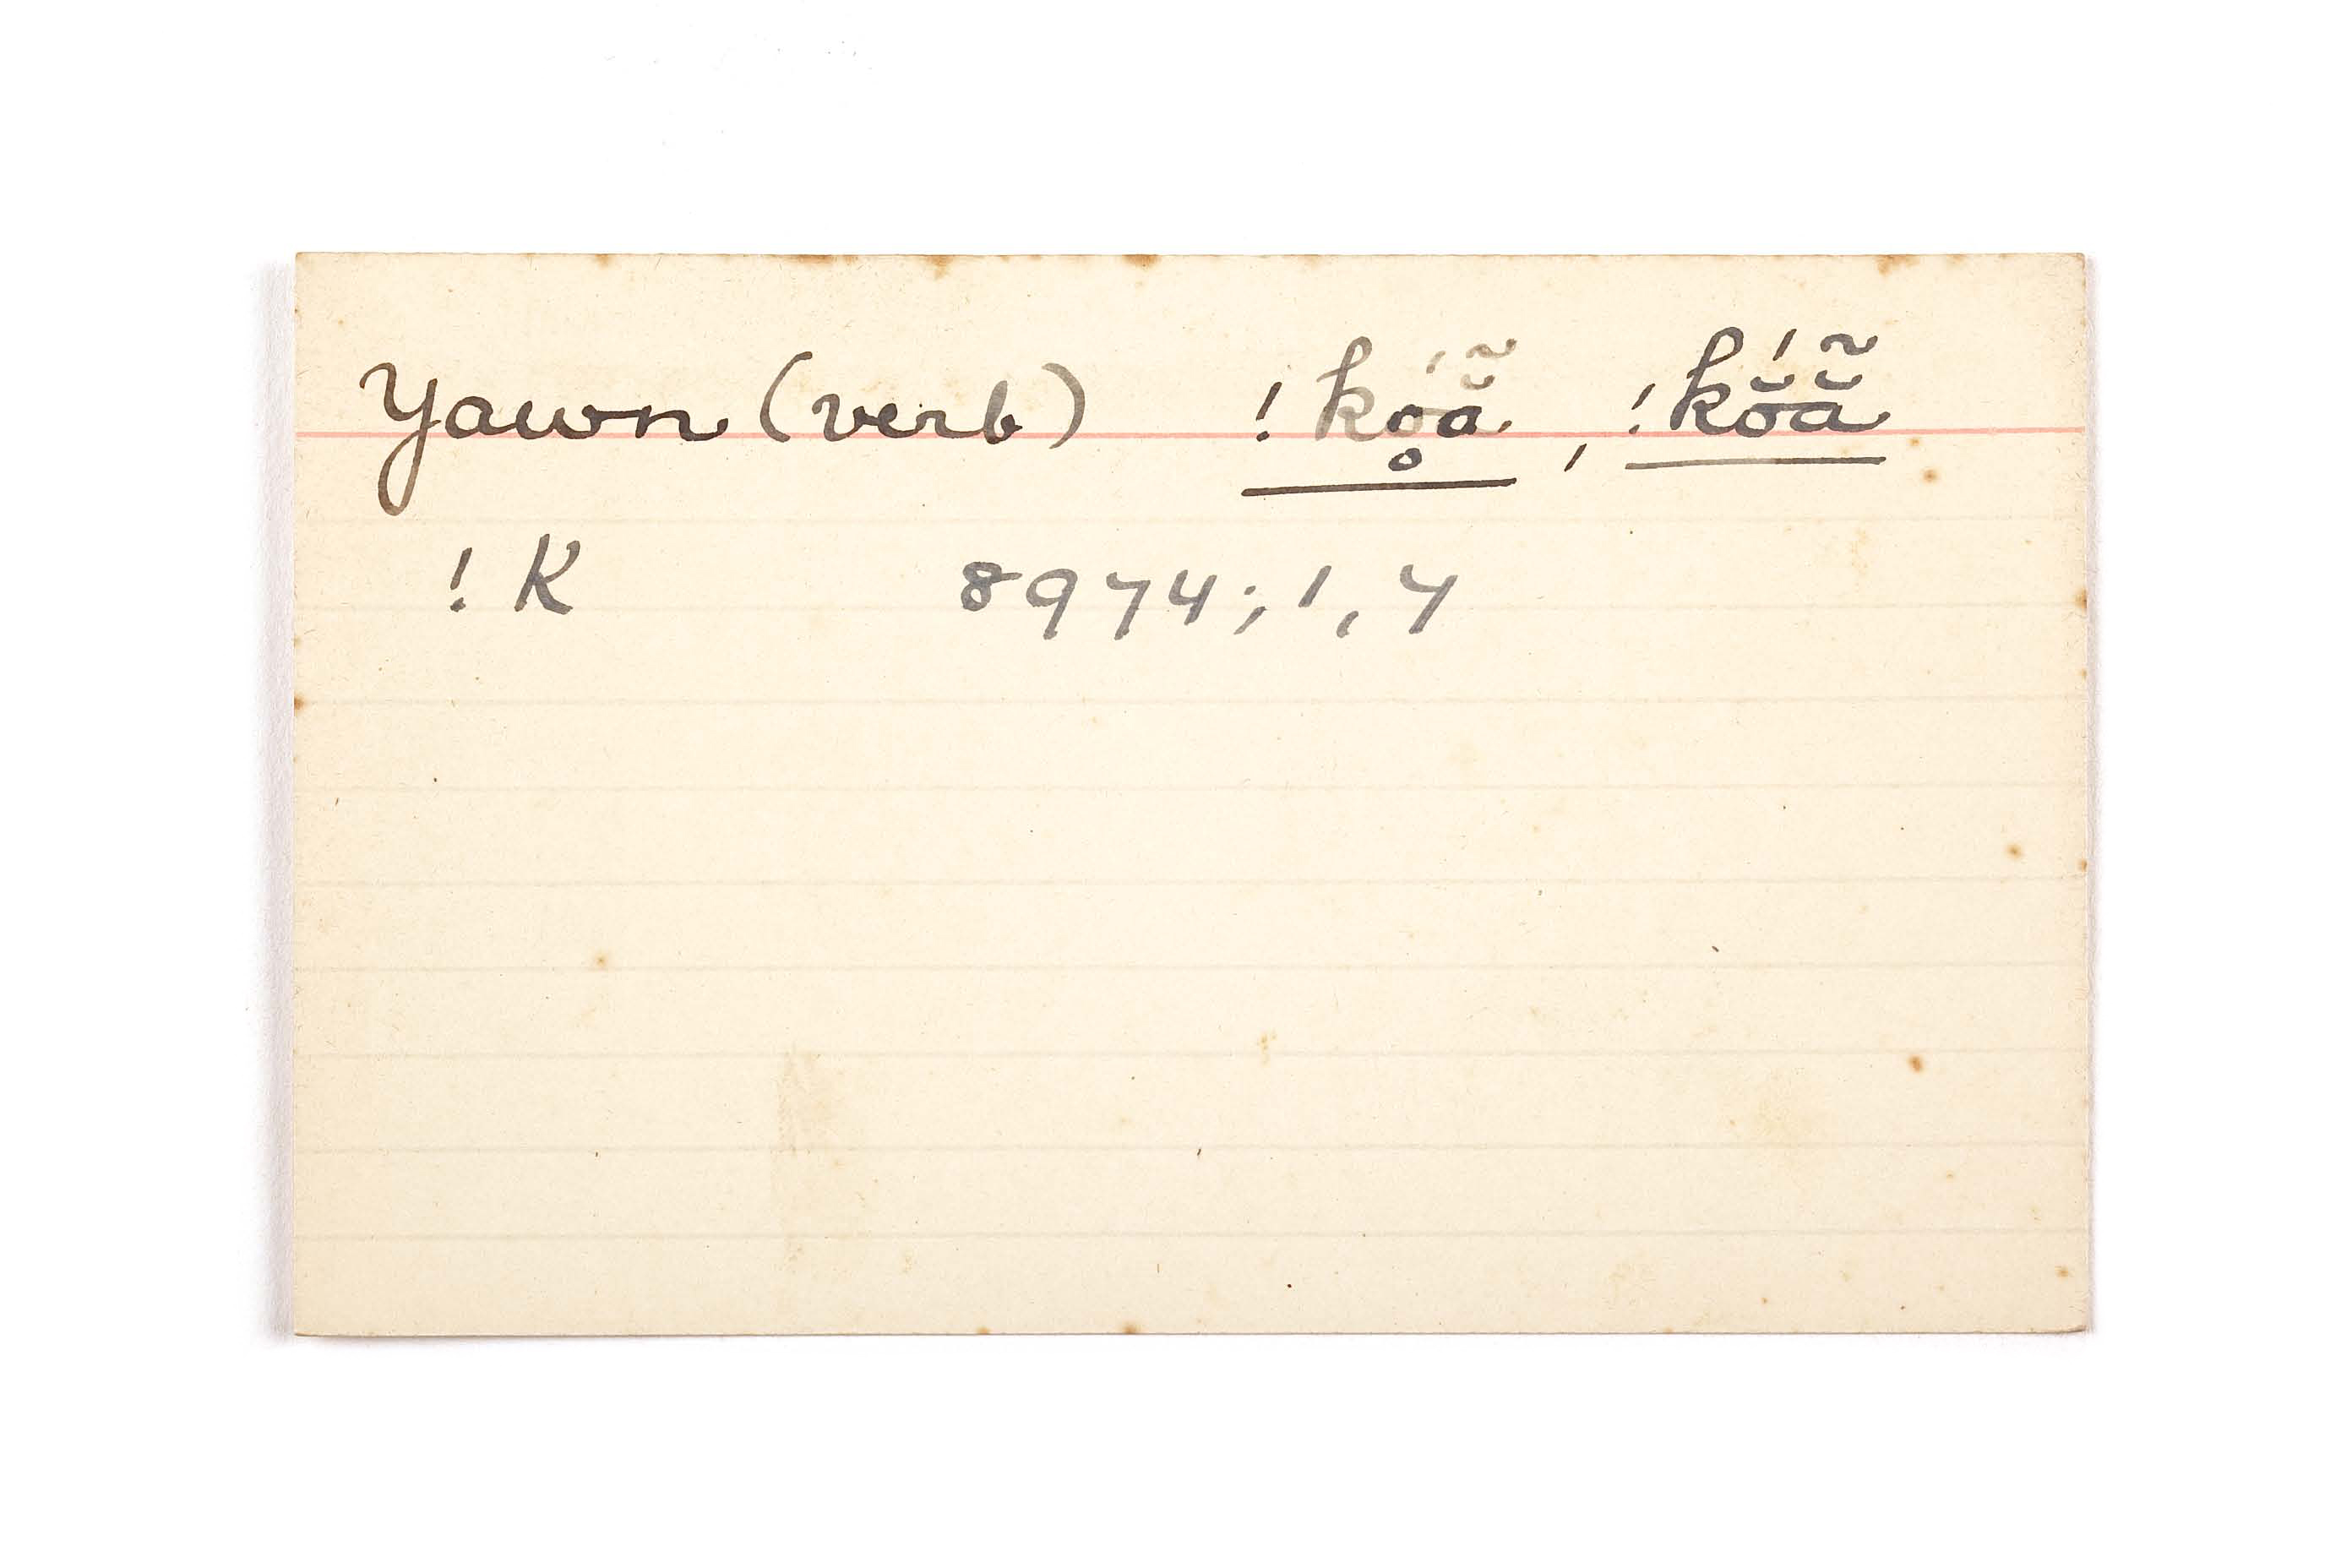 Yawn (verb) !kó̥ẵ , !kṓ̆ā̆̃
!K 8974; 1, 7